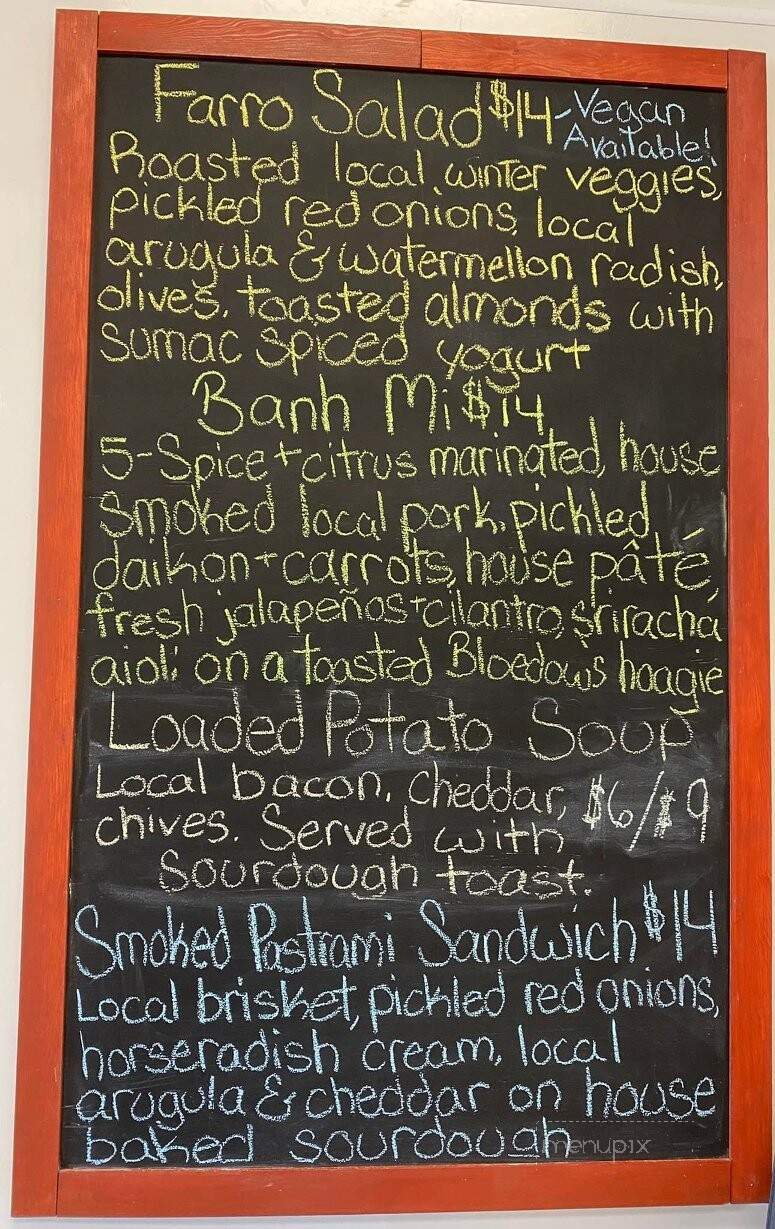 Farro Salad $14 - Vegan
Available!
Roasted local winter veggies,
pickled red onions, local
arugula & watermellon radish,
olives, toasted almonds with
Sumac Spiced yogurt
Banh Mi $14
5-Spice + citrus marinated, house
Smoked local pork, pickled
daikon + carrots, house pâté,
fresh jalapeños + cilantro, sriracha
aioli on a toasted Bloedow's hoagie
Loaded Potato Soup
Local bacon, cheddar, $6/$9
chives. Served with
Sourdough toast.
Smoked Pastrami Sandwich $14
Local brisket, pickled red onions,
horseradish cream, local
arugula & cheddar on house
baked sourdough
menupix